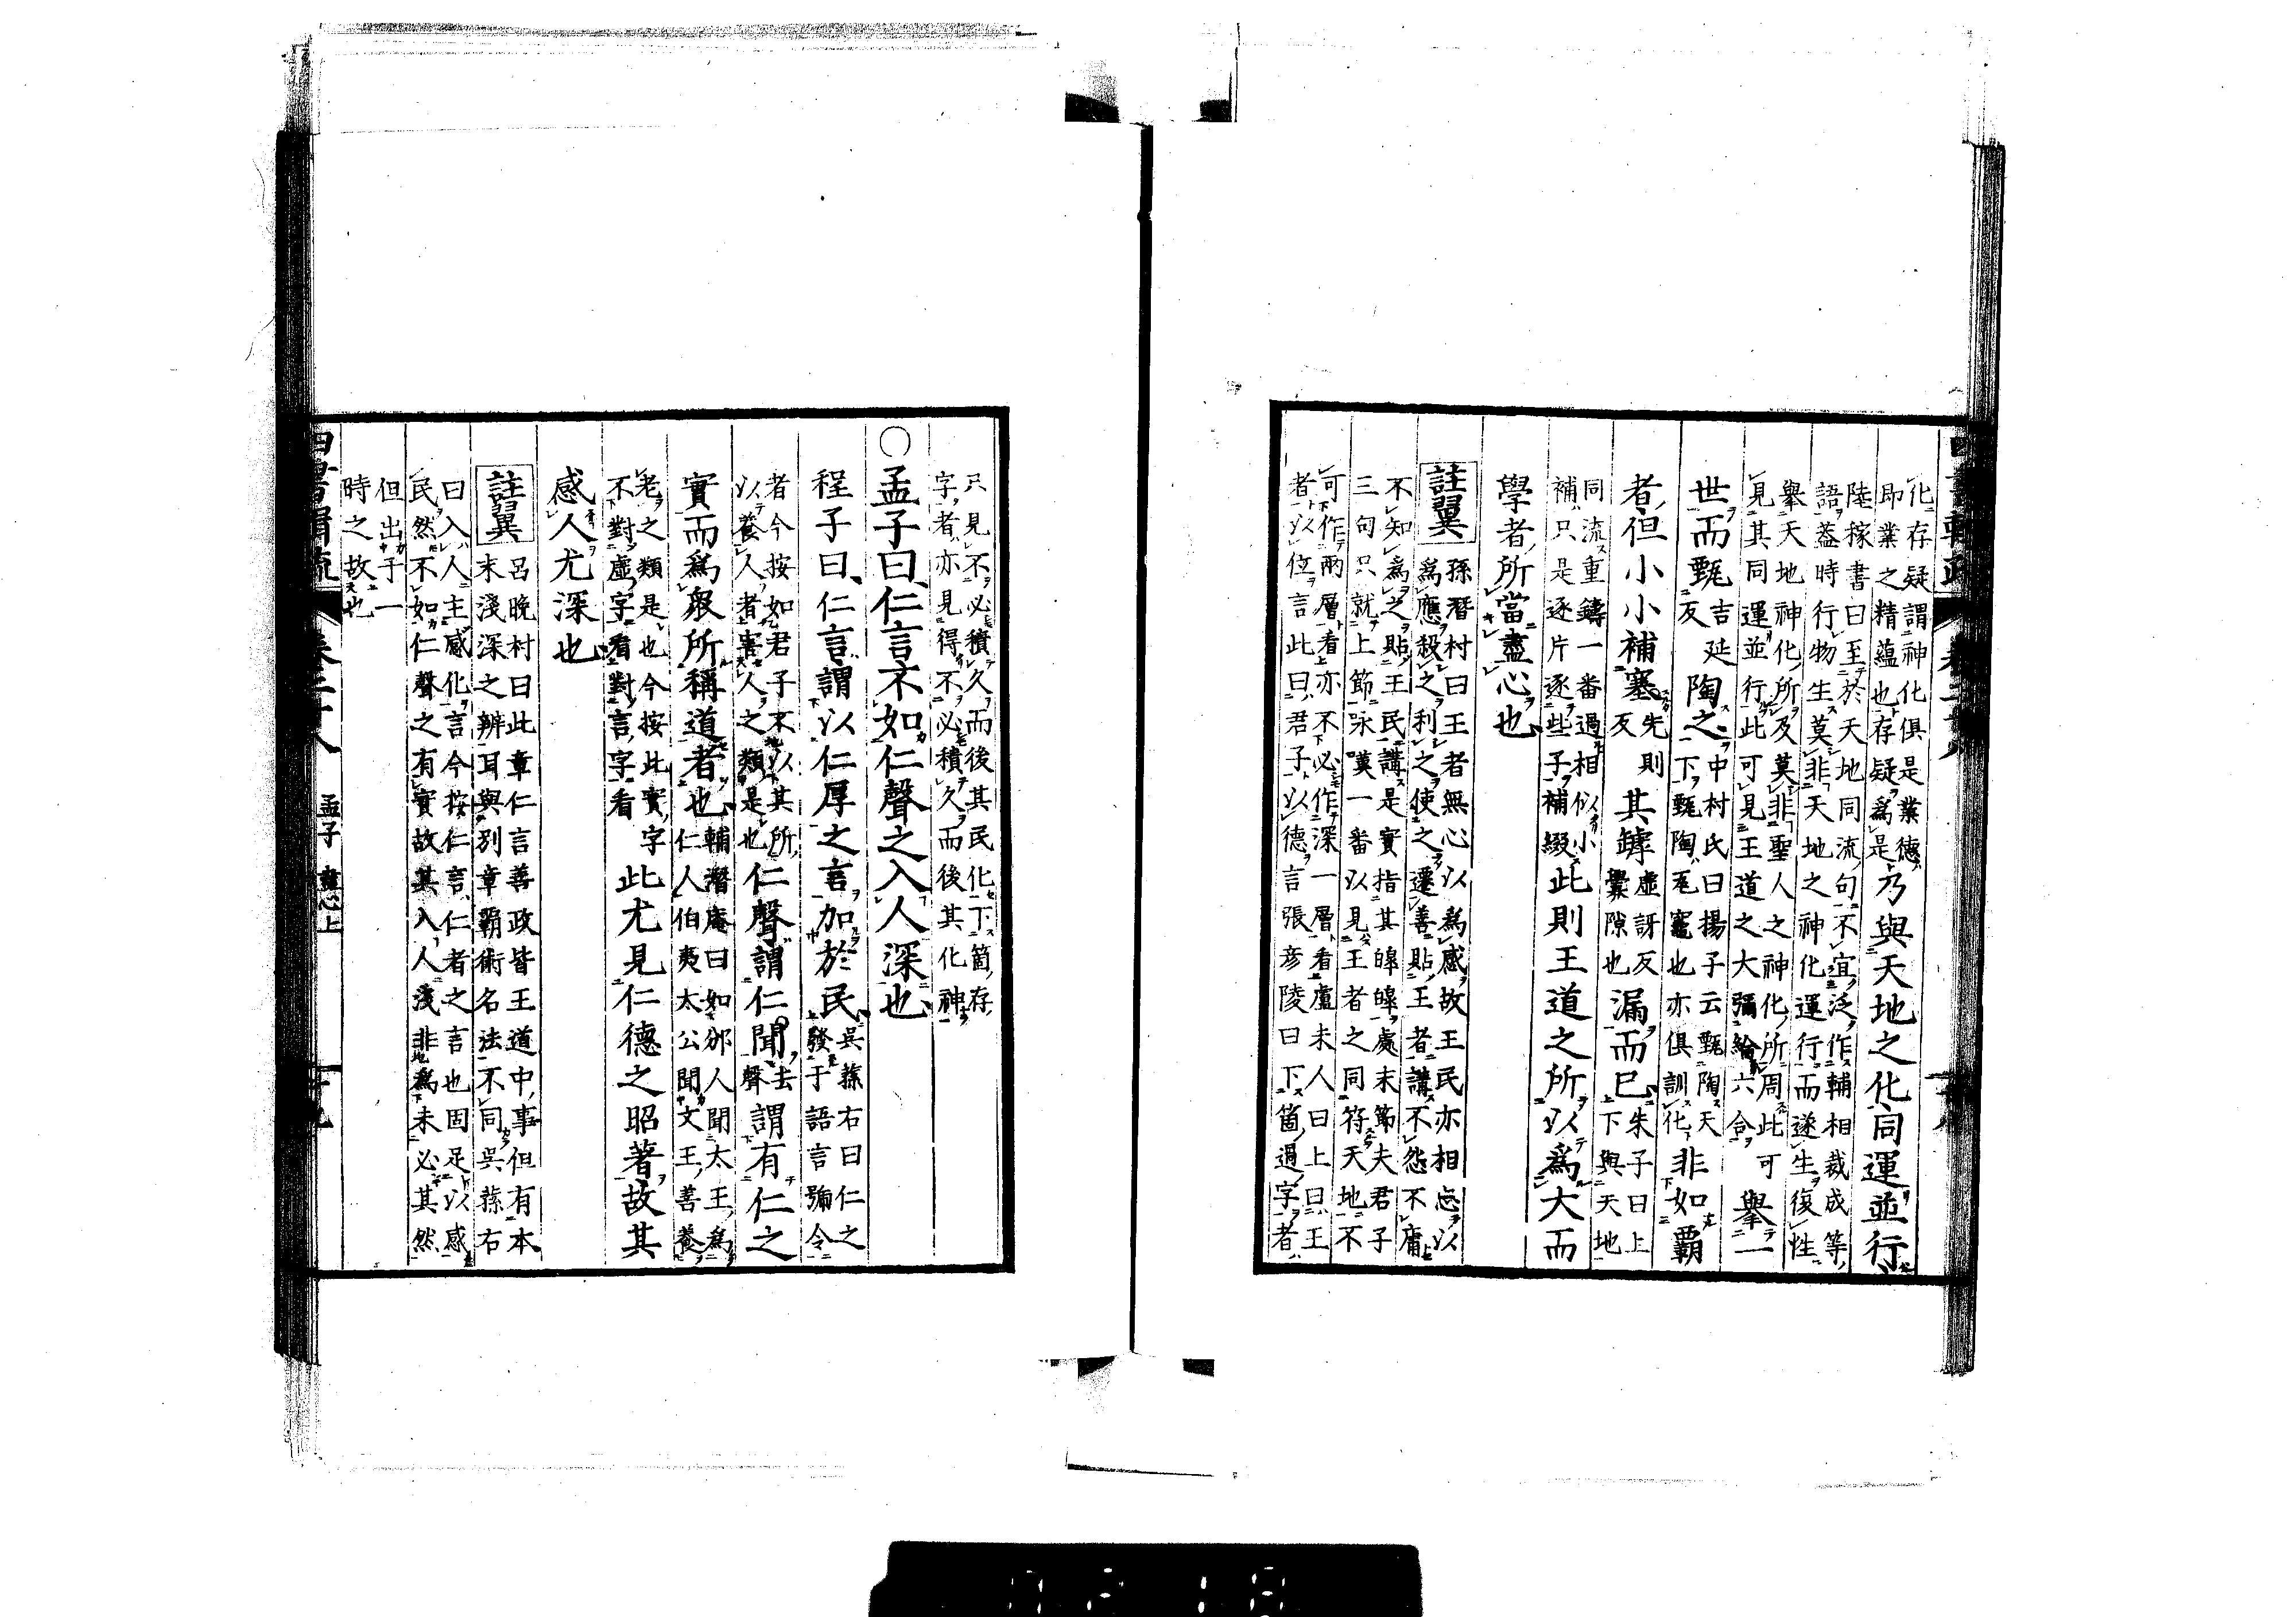 化存疑謂神化俱是業德
即業之精蘊也存疑爲是乃與天地之化同運並行
陸稼書曰至於天地同流句不宜泛作輔相裁成等
語蓋時行物生莫非天地之神化運行而遂生復性
舉天地神化所及莫非聖人之神化所周此可
見其同運並行此可見王道之大彌綸六合舉一
世而甄吉延反陶之中村氏曰揚子云甄陶天
下甄陶瓦竈也亦俱訓化非如霸
者但小小補塞先則反其罅虛訝反
釁隙也漏而已朱子曰上下與天地
同流重鑄一番過相似小
補只是逐片逐些子補綴此則王道之所以爲大而
學者所當盡心也
註翼
孫曆村曰王者無心以爲感故王民亦相忘以
爲應殺之利之使之遷善貼王者講不怨不庸
不知爲之貼王民講是實指其皞皞處末節夫君子
三句只就上節咏嘆一番以見王者之同符天地不
可作兩層看亦不必作深一層看盧未人曰上曰王
者以位言此曰君子以德言張彦陵曰下箇過字者
只見不必積久而後其民化下箇存
字者亦見得不必積久而後其化神
○孟子曰仁言不如仁聲之入人深也
程子曰仁言謂以仁厚之言加於民吳蓀右曰仁之
發于語言號令
者今按如君子不以其所
以養人者害人之類是也仁聲謂仁聞去聲謂有仁之
實而爲衆所稱道者也輔潛庵曰如邠人聞太王爲
仁人伯夷太公聞文王善養
老之類是也今按此實字
不對虛字看對言字看此尤見仁德之昭著故其
感人尤深也
註翼
呂晚村曰此章仁言善政皆王道中事但有本
末淺深之辨耳與別章霸術名法不同吳蓀右
曰入人主感化言今按仁言仁者之言也固足以感
民然不如仁聲之有實故其入人淺非爲未必其然
但出于一
時之故也
孟子 盡心上